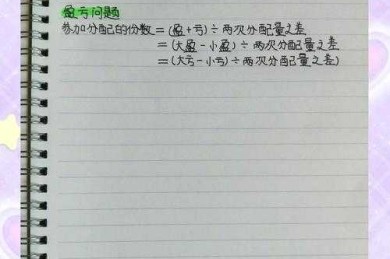 盈亏问题
参加分配的份数=(盈+亏)÷两次分配量之差
=(大盈-小盈)÷两次分配量之差
=(大亏-小亏)÷两次分配量之差)